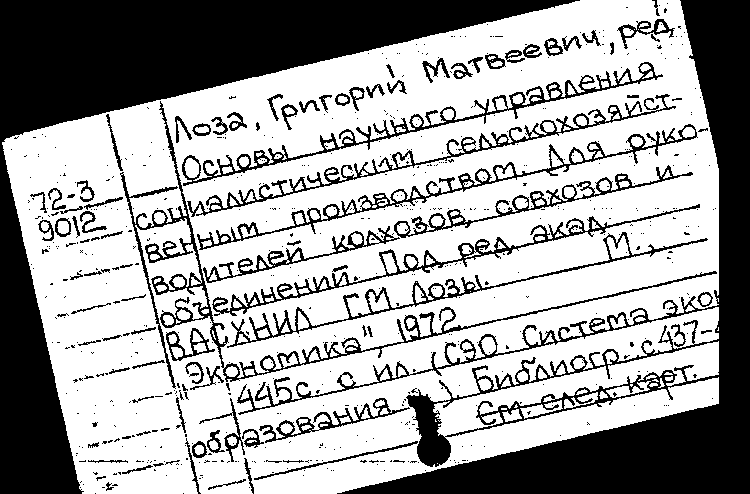 1.
Лоза, Григорий Матвеевич, ред.
Основы научного управления
социалистическим сельскохозяйст-
72-3
9012
венным производством. Для руко-
водителей колхозов, совхозов и
объединений. Под ред. акад.
ВАСХНИЛ Г.М. Лозы. М.,
"Экономика", 1972
445с. с ил. (СЭО. Система экон
образования ) Библиогр.: с 437-4
См. след. карт.